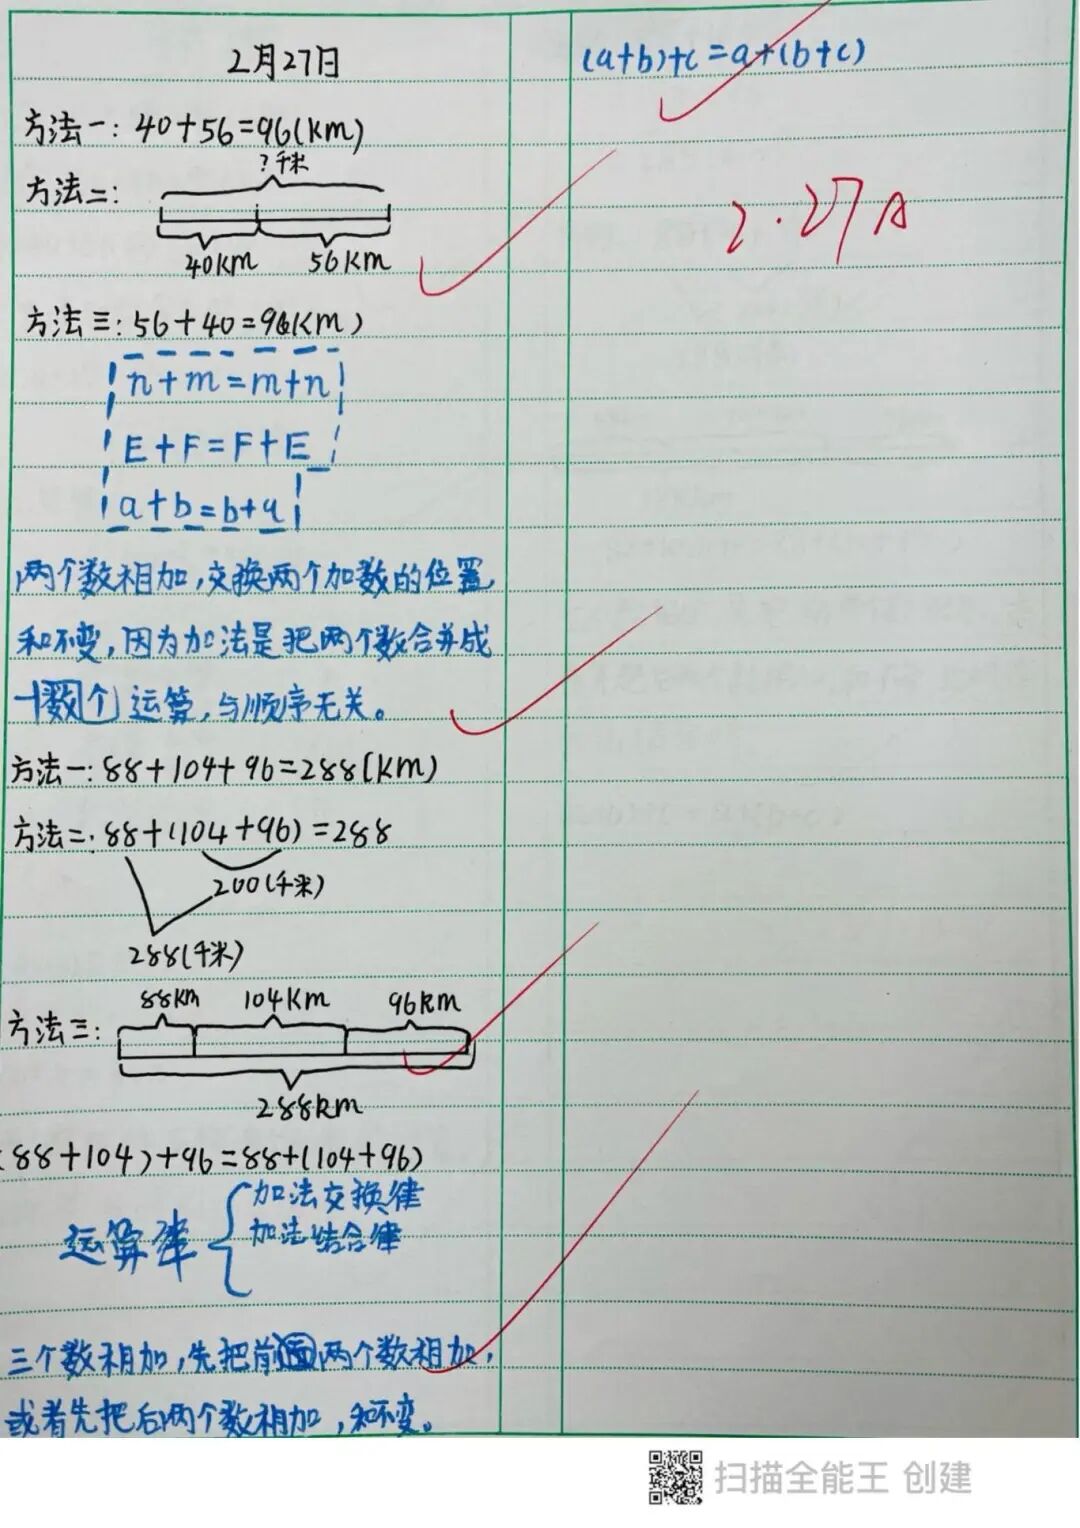 2月27日
方法一: 40+56=96(km)
方法二:
?千米
40km 56km
方法三: 56+40=96(km)
n+m=m+n
E+F=F+E
a+b=b+a
两个数相加,交换两个加数的位置
和不变,因为加法是把两个数合并成
一数个 运算,与顺序无关。
方法一: 88+104+96=288(km)
方法二: 88+(104+96)=288
200(千米)
288(千米)
88km 104km 96km
方法三:
288km
(88+104)+96=88+(104+96)
运算律
加法交换律
加法结合律
三个数相加,先把前面两个数相加,
或者先把后两个数相加,和不变。
(a+b)+c=a+(b+c)
2.27 A
扫描全能王 创建